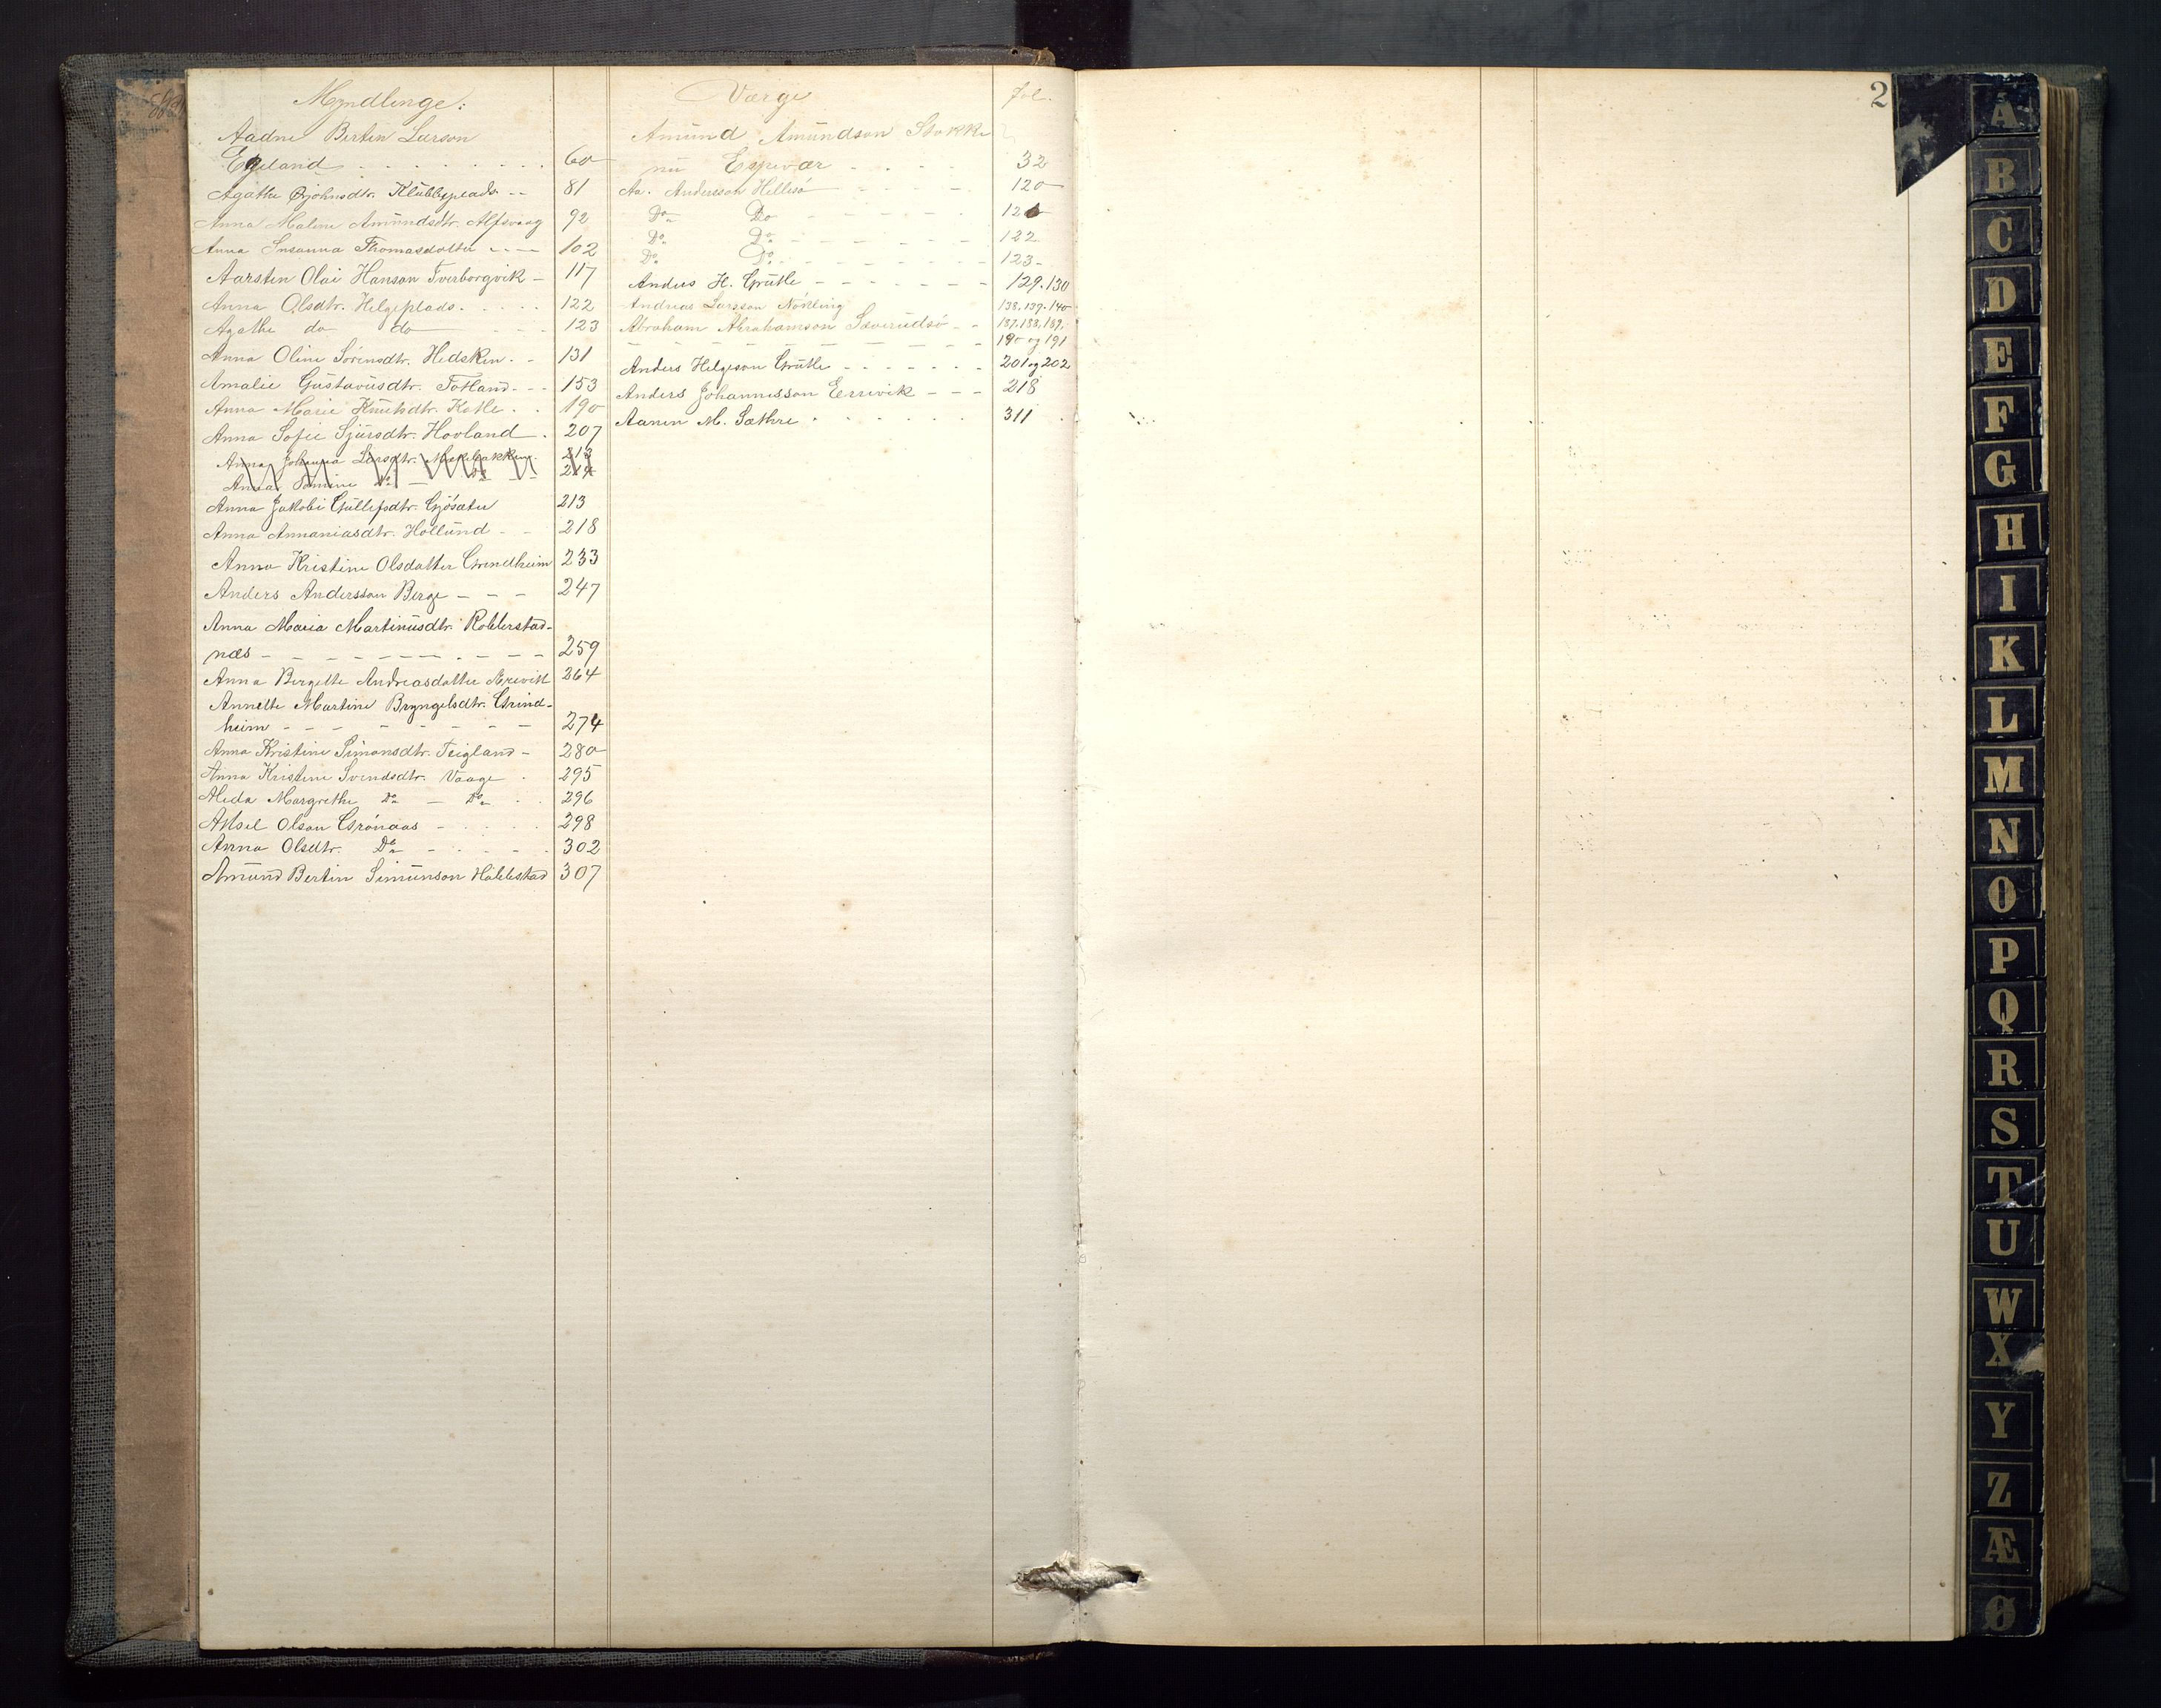 Myndlinge:
Aadne Bertin Larson
Egeland - - - 60
Agathe Bjohnsdtr. Klubbeplads - - 81
Anna Maline Amündsdtr. Alfsvaag 92
Anna Susanna Thomasdatter - - - 102
Aarsten Olai Hanson Tverborgvik - 117
Anna Olsdtr. Helgeplads. - - - 122
Agathe do do - - - 123
Anna Oline Sörensdtr. Hidsken. - 131
Amalie Güstavüsdtr. Totland - - 153
Anna Marie Knütsdtr. Katle. - 190
Anna Sofie Sjürsdtr. Hovland. 207
Anna Johanna Larsdtr. 213
Anna Do Do 214
Anna Jakobi Güllefsdtr. Gjösater 213
Anna Annaniasdtr. Hollünd - - 218
Anna Kristine Olsdatter Grindheim 233
Anders Andersson Berge - - - 247
Anna Maria Martinüsdtr. Robberstad-
næs - - - 259
Anna Bergette Andreasdatter 264
Annette Martine Bryngelsdtr. Grind-
heim - - - 274
Anna Kristine Simonsdtr. Teigland - 280
Anna Kristine Svendsdtr. Vaage. 295
Alida Margrethe Do - Do. 296
Aksel Olson Grönaas - - - 298
Anna Olsdtr. Do - - - 302
Amünd Bertin Simünson Habbestad 307
Værge fol.
Amünd Amündson Stokke
nü Espevær - - - 32
Aa. Andersson Hellesö - - - 120
Do Do - - - 121
Do Do - - - 122
Do Do - - - 123
Anders H. Grütle - - - 129. 130
Andreas Larsson Nökling 138. 139. 140
Abraham Abrahamson Sæverüdsö - - 187. 188. 189.
- - - 190 og 191
Anders Helgeson Grütle - - - 201 og 202
Anders Johannesson Eresvik - - - 218
Aanen M. Sæthre - - - 311
2
A
B
C
D
E
F
G
H
I
K
L
M
N
O
P
Q
R
S
T
U
W
X
Y
Z
Æ
Ø